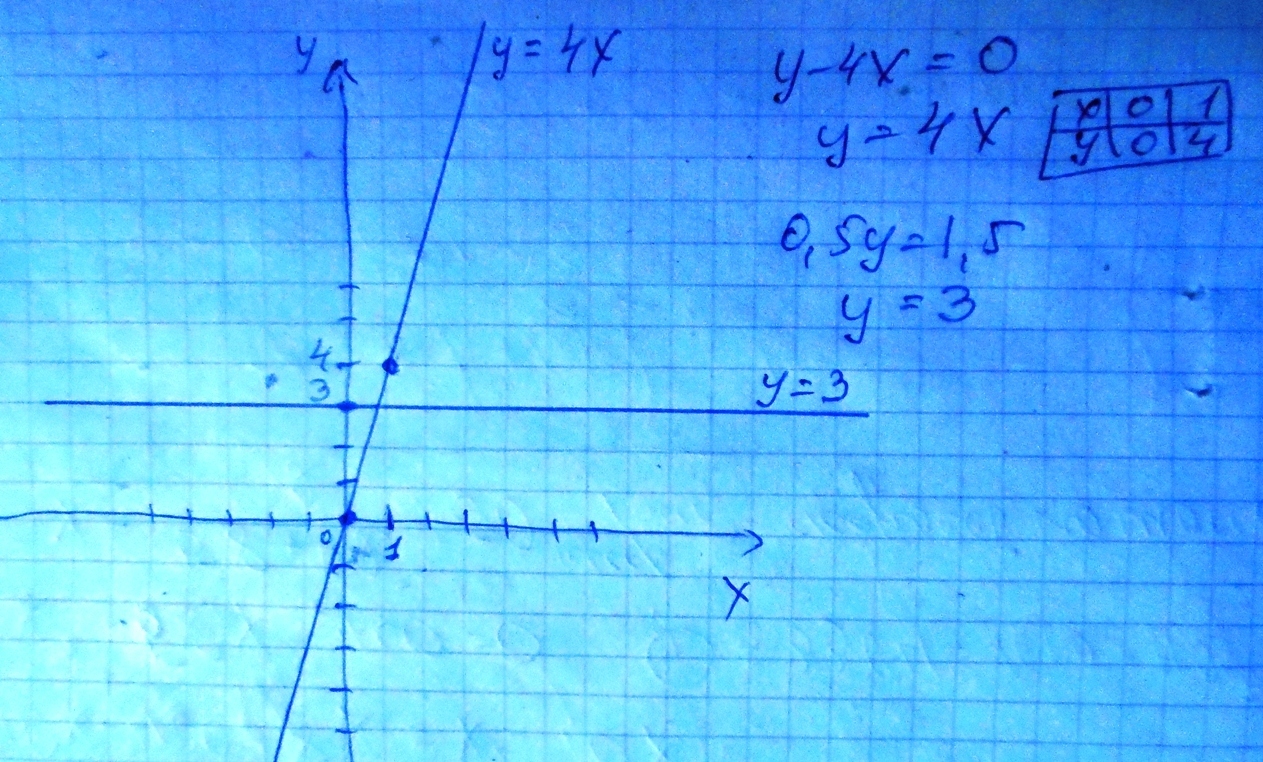 y
y = 4x
y - 4x = 0
y = 4x
x 0 1
y 0 4
0,5y = 1,5
y = 3
4
3
y = 3
0
1
x